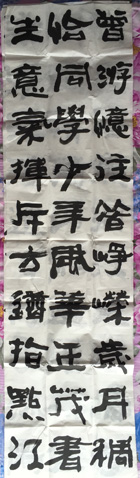 曾游憶往昔崢嶸歲月稠
恰同學少年風華正茂書
生意氣揮斥方遒指點江